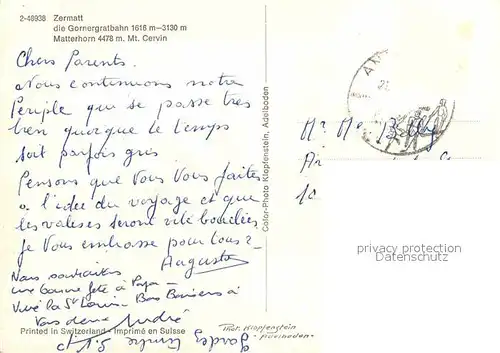 2-48938 Zermatt
die Gornergratbahn 1616 m—3130 m
Matterhorn 4478 m. Mt. Cervin
Chers Parents.
Nous continuons notre
Periple qui se passe tres
bien quoique le temps
soit parfois gris
Pensons que Vous Vous faites
a l'idée du voyage et que
les valises seront vite bouclées
Je Vous embrasse pour tous
Augusta
Nous souhaitons
une bonne fête à Papa —
Vive la St Louis Bons Baisers à
Vous deux André
Printed in Switzerland - Imprimé en Suisse
Color-Photo Klopfenstein, Adelboden
AN
Mr Me
10
privacy protection
Datenschutz
Phot. Klopfenstein
Adelboden